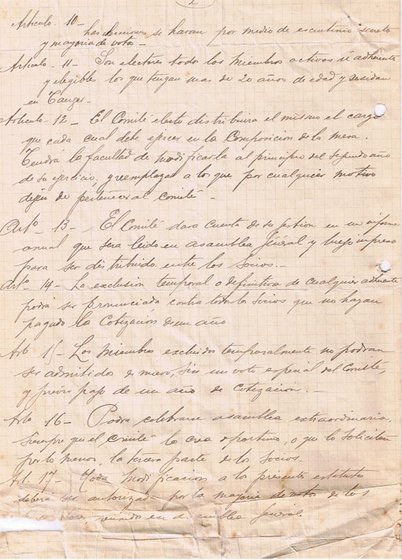 2
Articulo - 10 -
las elecciones se haran por medio de escrutinio secreto
y mayoria de votos.-
Articulo - 11 - Son electores todo los miembros activos si adherente
y elegible los que tengan mas de 20 años de edad y residan
en Tanger.
Articulo - 12 - El Comité electo distribuira el mismo el cargo
que cada cual debe ejercer en la Composicion de la mesa.
Tendra la facultad de modificarla al principio del segundo año
de su ejercicio, y reemplazar a lo que por cualquier motivo
dejen de pertenecer al comité -
Artº - 13 - El Comité dara cuenta de su gestion en un informe
anual que sera leido en asamblea general y luego impreso
para ser distribuido entre los socios.-
Artº - 14 - La exclusion temporal o definitiva de cualquier adherente
podra ser pronunciada contra todo lo socios que no hayan
pagado la Cotizacion de un año
Art. 15 - Los miembros excluidos temporalmente no podran
ser admitido de nuevo, sin un voto especial del Comité,
y previo pago de un año de cotizacion.-
Art. 16 - Podra celebrarse asamblea extraordinaria
siempre que el comité lo crea oportuno, o que lo soliciten
por lo menos, la tercera parte de los socios.
Art. 17 - Toda modificacion a los presente estatutos
debera ser autorizada por la mayoria de votos de los
reunido en asamblea general.